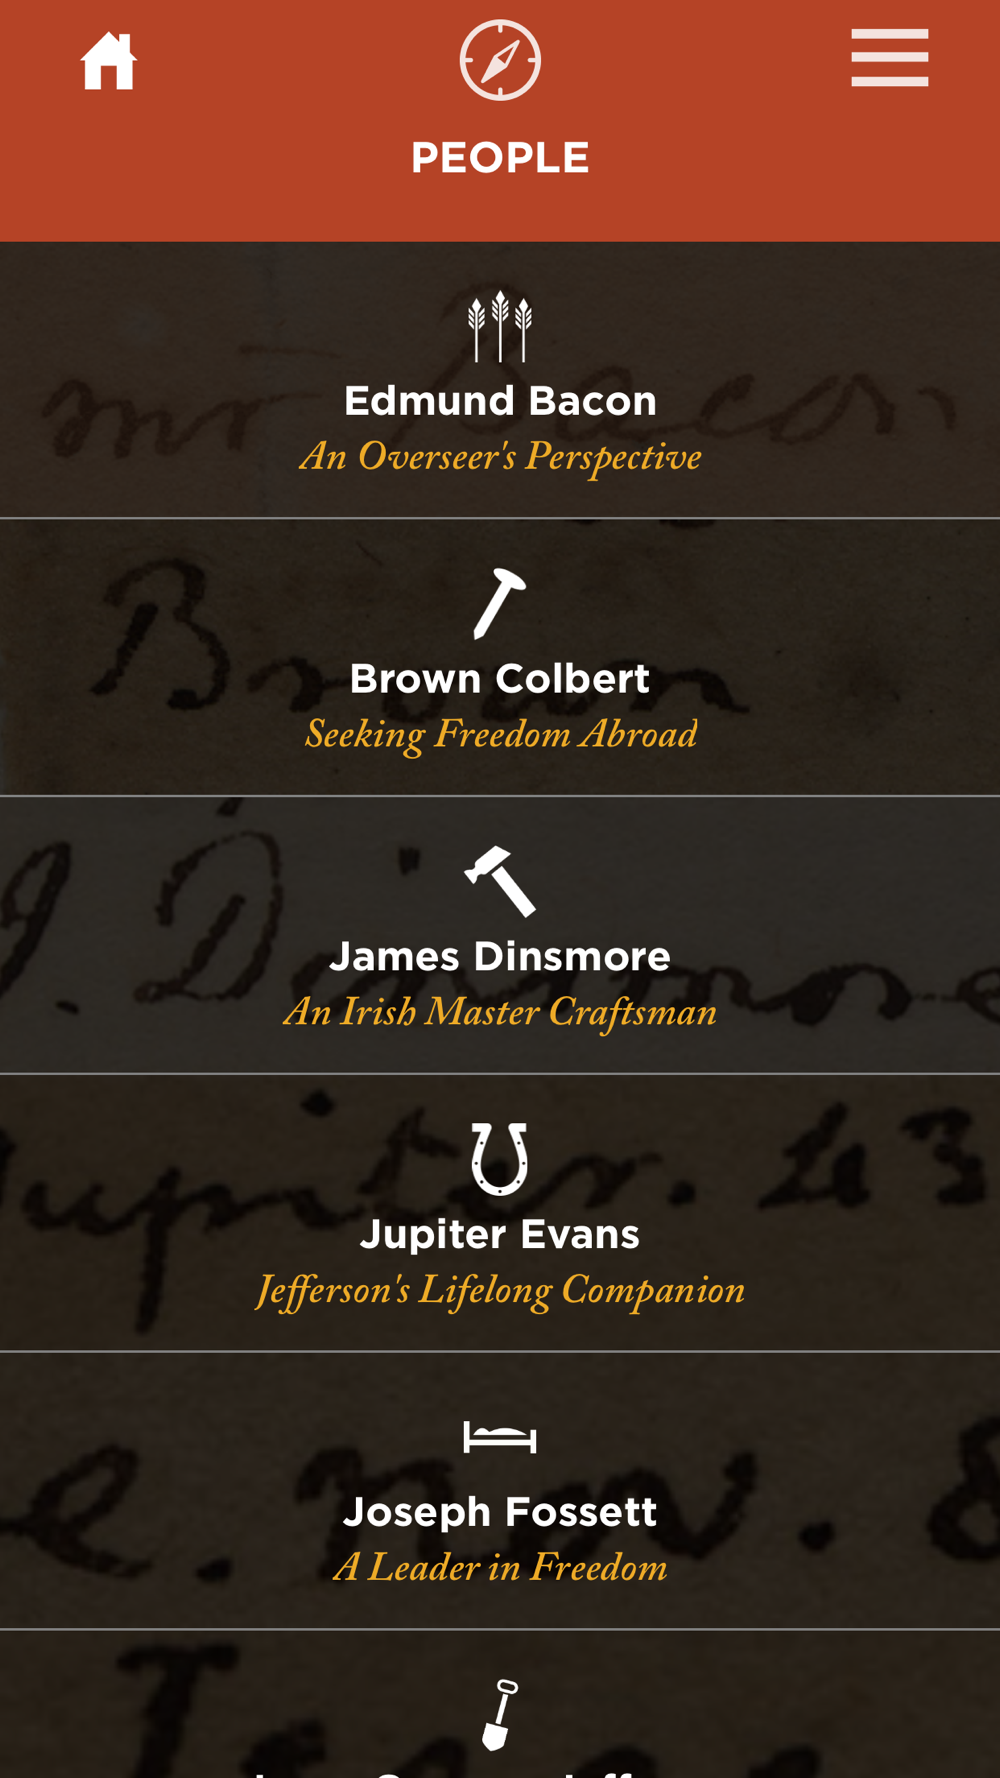 PEOPLE
mr Bacon
Edmund Bacon
An Overseer's Perspective
Brown
Brown Colbert
Seeking Freedom Abroad
J. Dinsmore
James Dinsmore
An Irish Master Craftsman
Jupiter. 43
Jupiter Evans
Jefferson's Lifelong Companion
e. nov. 8
Joseph Fossett
A Leader in Freedom